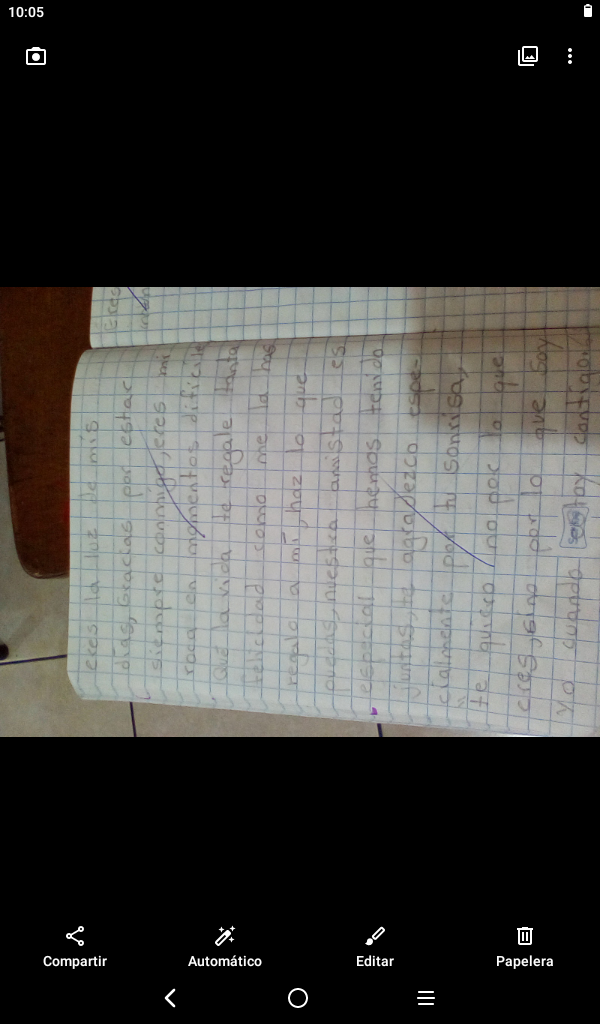 10:05
Eres
eres la luz de mis
días, Gracias por estar
siempre conmigo, eres mi
roca en momentos dificile
Que la vida te regale tanta
felicidad como me la has
regalo a mí, haz lo que
puedas, nuestra amistad es
especial que hemos tenido
juntas, te agradezco espe-
cialmente por tu sonrisa,
te quiero no por lo que
eres, sino por lo que soy
yo cuando soy contigo.
Compartir
Automático
Editar
Papelera